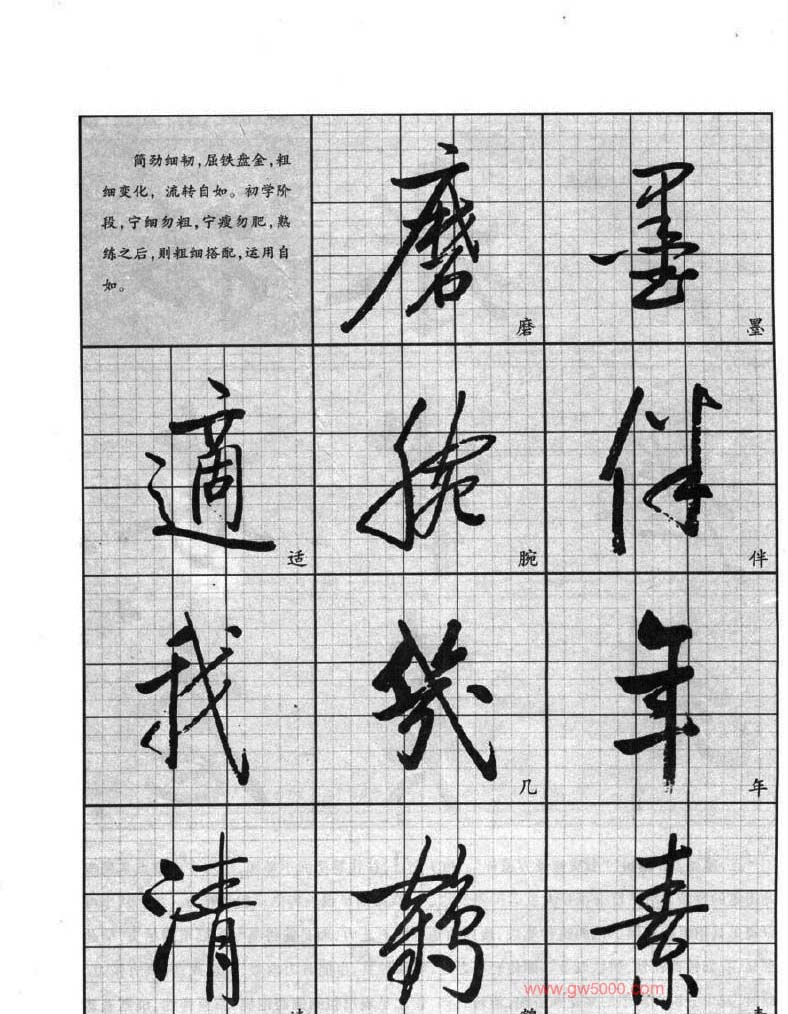 简劲细韧,屈铁盘金,粗
细变化,流转自如。初学阶
段,宁细勿粗,宁瘦勿肥,熟
练之后,则粗细搭配,运用自
如。
磨 墨
磨 墨
適 腕 伴
适 腕 伴
我 幾 年
几 年
清 鹤 素
www.gw5000.com